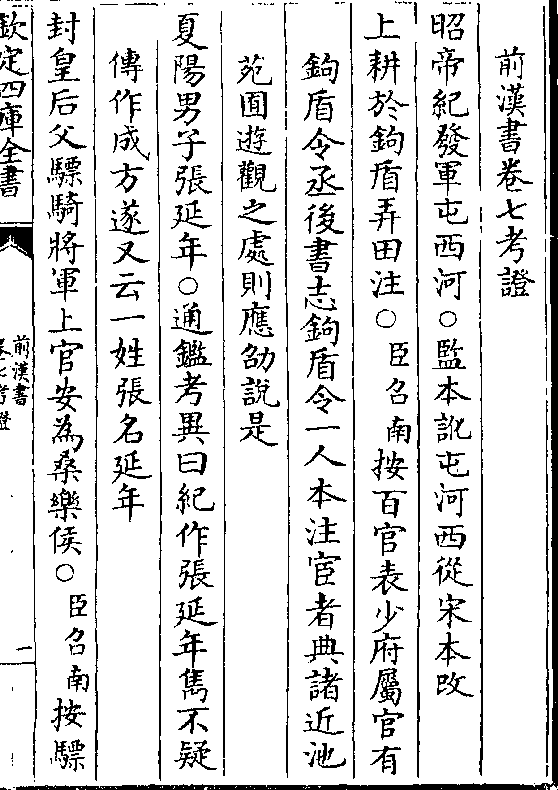 前漢書卷七考證
昭帝紀發軍屯西河○監本訛屯河西從宋本改
上耕於鉤盾弄田注○臣召南按百官表少府屬官有
鉤盾令丞後書志鉤盾令一人本注宦者典諸近池
苑囿遊觀之處則應劭說是
夏陽男子張延年○通鑑考異曰紀作張延年雋不疑
傳作成方遂又云一姓張名延年
封皇后父驃騎將軍上官安為桑樂侯○臣召南按驃
欽定四庫全書
前漢書
卷七考證
一